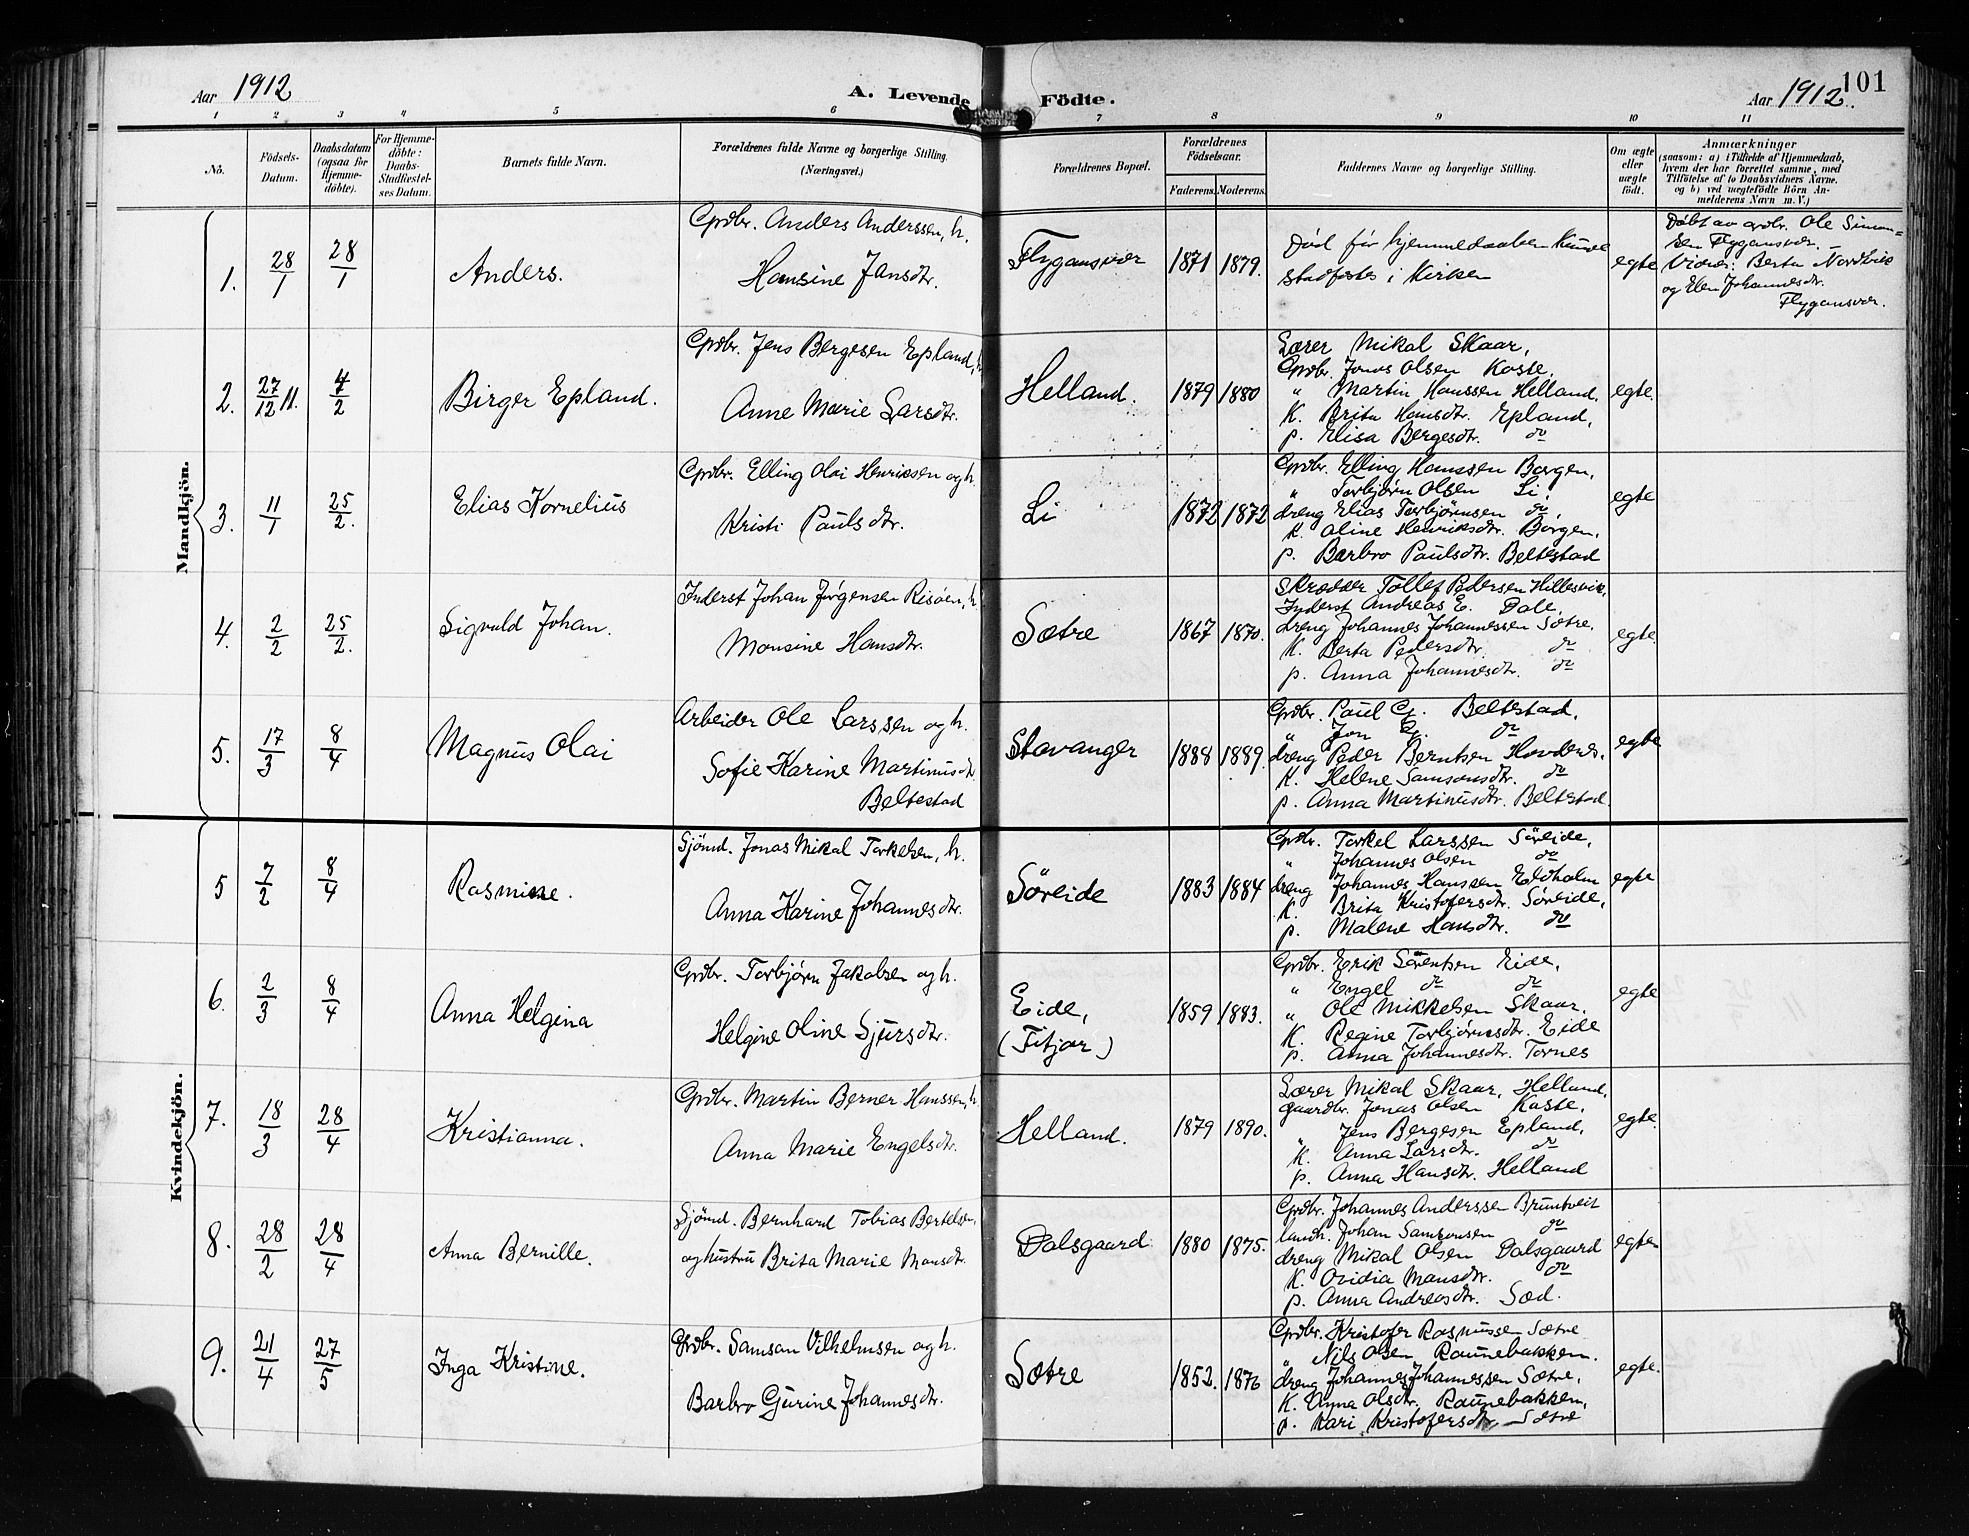 Aar 1912
A. Levende Födte.
Aar 1912
101
1 2 3 4 5 6 7 8 9 10 11
No.
Födsels-
Datum.
Daabsdatum
(ogsaa för
Hjemme-
döbte).
For Hjemme-
döbte:
Daabs-
Stadfæstel-
ses Datum.
Barnets fulde Navn.
Forældrenes fulde Navne og borgerlige Stilling.
(Næringsvei.)
Forældrenes Bopæl.
Forældrenes
Födselsaar.
Faderens.
Moderens.
Faddernes Navne og borgerlige Stilling.
Om ægte
eller
uægte
födt.
Anmærkninger
(saasom: a) i Tilfælde af Hjemmedaab,
hvem der har forrettet samme, med
Tilföielse af to Daabsvidners Navne.
og b) ved uægtefödte Börn An-
melderens Navn m. V.)
Mandkjön.
1.
28/1
28/1
Anders.
Gprdbr. Anders Anderssen, h.
Hansine Jansdtr.
Flygansvær
1871
1879.
Död för hjemmedaaben kunde
stadfestes i Kirken
egte
Döbt av grdbr. Ole Simon-
sen Flygansvær.
Vidner: Berta Nordvik
og Elen Johannesdtr.
Flygansvær.
2.
27/12 11.
4/2
Birger Epland.
Gprdbr. Jens Bergesen Epland, h
Anne Marie Larsdtr.
Helland.
1879
1880
Lærer Mikal Skaar,
Gprdbr. Jonas Olsen Kaste,
" Martin Hanssen Helland,
K. Brita Hansdtr. Epland,
p. Elisa Bergesdtr. do
egte.
3.
11/1
25/2.
Elias Kornelius
Gprdbr. Elling Olai Henriksen og h.
Kristi Paulsdtr.
Li
1872
1872
Gprdbr. Elling Hanssen Borgen,
" Torbjörn Olsen Li,
dreng Elias Torbjörnsen do,
K. Oline Henriksdtr. Borgen,
p. Barbro Paulsdtr. Beltestad
egte
4.
2/2
25/2.
Sigvald Johan.
Inderst Johan Jörgensen Risöen, h.
Monsine Hansdtr.
Sætre
1867
1870.
Skrædder Tollef Pedersen Hillesvik,
Inderst Andreas E. Dale,
dreng Johannes Johannessen Sætre,
K. Berta Pedersdtr. do
p. Anna Johannesdtr. do
egte.
5.
17/3
8/4
Magnus Olai
Arbeider Ole Larssen og h.
Sofie Karine Martinusdtr
Beltestad
Stavanger
1888
1889.
Gprdbr. Paul G. Beltestad,
" Jon G. do
dreng Peder Berntsen Hovdenes,
K. Helene Samsonsdtr. do
p. Anna Martinusdtr. Beltestad
egte
Kvindekjön.
5
7/2
8/4
Rasmine.
Sjömd. Jonas Mikal Torkelsen, h.
Anna Karine Johannesdtr.
Söreide
1883
1884
Gprdbr. Torkel Larssen Söreide,
" Johannes Olsen do
dreng Johannes Hanssen Eldholm
K. Brita Kristofersdtr. Söreide,
p. Malene Hansdtr. do
egte
6.
2/3
8/4
Anna Helgina
Gprdbr. Torbjörn Jakobsen og h.
Helgine Oline Sjursdtr.
Eide,
(Fitjar)
1859
1883.
Gprdbr. Erik Sörentsen Eide,
" Engel do do
" Ole Mikkelsen Skaar,
K. Regine Torbjörnsdtr. Eide
p. Anna Johannesdtr. Tornes
egte
7.
18/3
28/4
Kristianna.
Gprdbr. Martin Berner Hanssen, h.
Anna Marie Engelsdtr.
Helland.
1879
1890.
Lærer Mikal Skaar, Helland,
gaardbr. Jonas Olsen Kaste,
" Jens Bergesen Epland,
K. Anna Larsdtr. do
p. Anna Hansdtr. Helland
egte.
8.
28/2
28/4
Anna Bernille.
Sjömd. Bernhard Tobias Bertelsen,
og hustru Brita Marie Monsdtr.
Dalsgaard
1880
1875.
Gprdbr. Johannes Anderssen Bruntveit
landh. Johan Samsonsen do
dreng Mikal Olsen Dalsgaard
K. Ovidia Mansdtr. do
p. Anna Andreasdtr. Sæd.
egte
9.
21/4
27/5
Inga Kristine.
Gprdbr. Samson Vilhelmsen og h.
Barbro Gurine Johannesdtr.
Sætre
1852.
1876
Gprdbr. Kristofer Rasmussen Sætre
" Nils Olsen Raunebakken.
dreng Johannes Johannessen Sætre,
K. Anna Olsdtr. Raunebakken,
p. Kari Kristofersdtr Sætre
egte.